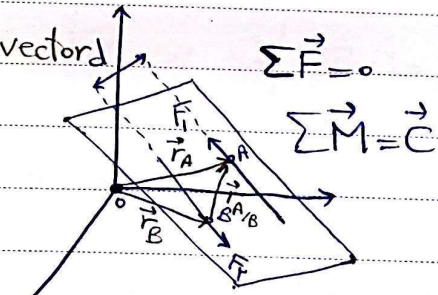 vector d
ΣF⃗=0
ΣM⃗=C⃗
F₁
r⃗_A
A
r⃗_A/B
O
r⃗_B
B